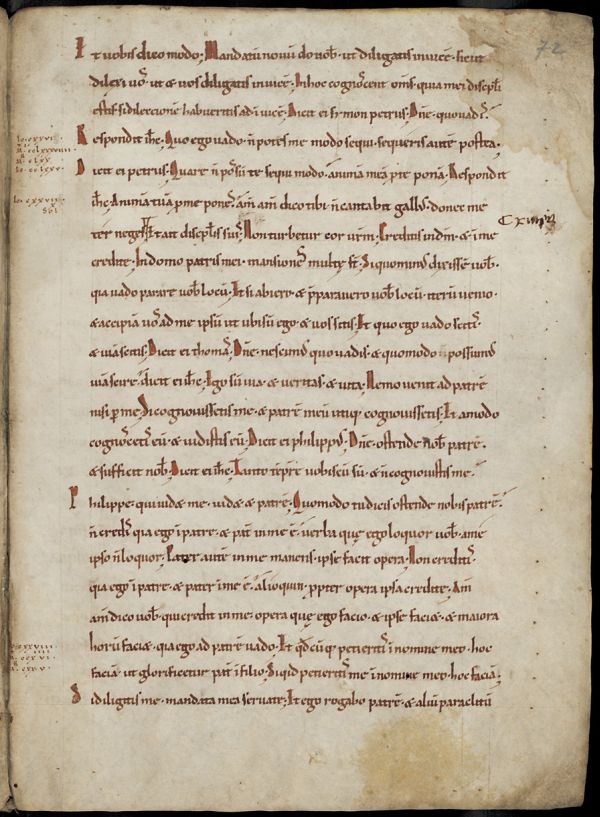 72
Et vobis dico modo; Mandatū novū do vob̄. ut diligatis invicē. sicut
dilexi vos̄. ut & vos diligatis invicē. Inhoc cognoscent om̄s. quia mei discipl̄i
estis. sidileccionē habueritis ad invicē. Dicit ei simon petrus. Dn̄e. quo vadis.
Respondit ih̄c. Quo ego vado. n̄ potes me modo sequi. sequeris autē postea.
Dicit ei petrus. Quare n̄ possū te sequi modo. animā meā p te ponā. Respondit
ih̄c. Animā tuā p me pones. am̄ am̄ dico tibi. n̄ cantabit gallus. donec me
ter neges. Et ait discipl̄is suis. Non turbetur cor vr̄m. Creditis indm̄. & ī me
credite. In domo patris mei. mansiones multę st̄. Siquominus dixissē vob̄.
qia vado parare vob̄ locū. Et si abiero. & p̄paravero vob̄ locū. iterū venio.
& accipiā vos ad me ipsū ut ubi sū ego. & vos sitis. Et quo ego vado scitis.
& viā scitis. Dicit ei thomas. Dn̄e. nescimus quo vadis. & quomodo possumus
viā scire. dicit ei ih̄c. Ego sū via. & veritas. & vita. Nemo venit ad patrē
nisi p me. Si cognovissetis me. & patrē meū utiq; cognovissetis. Et amodo
cognoscetis eū. & vidistis eū. Dicit ei philippus. Dn̄e. ostende nob̄ patrē.
& sufficit nob̄. Dicit ei ih̄c. Tanto tēpre vobiscū sū. & n̄ cognovistis me.
Philippe. qui vid& me. vid& & patrē. Quomodo tu dicis ostende nobis patrē.
n̄ credis qia ego ī patre. & pat̄ in me ē. verba quę ego loquor vob̄. a me
ipso n̄ loquor. Pater autē in me manens. ipse facit opera. Non creditis
qia ego ī patre. & pater ī me ē. alioquin. ppter opera ipsa credite. Am̄
am̄ dico vob̄. qui credit in me. opera quę ego facio. & ipse faci&. & maiora
horū faci&. qia ego ad patrē vado. Et qdcūq; petieritis ī nomine meo. hoc
faciā. ut glorificetur pat̄ ī filio. Siqid petieritis me ī nomine meo. hoc faciā.
Si diligitis me. mandata mea servate. Et ego rogabo patrē. & aliū paraclitū